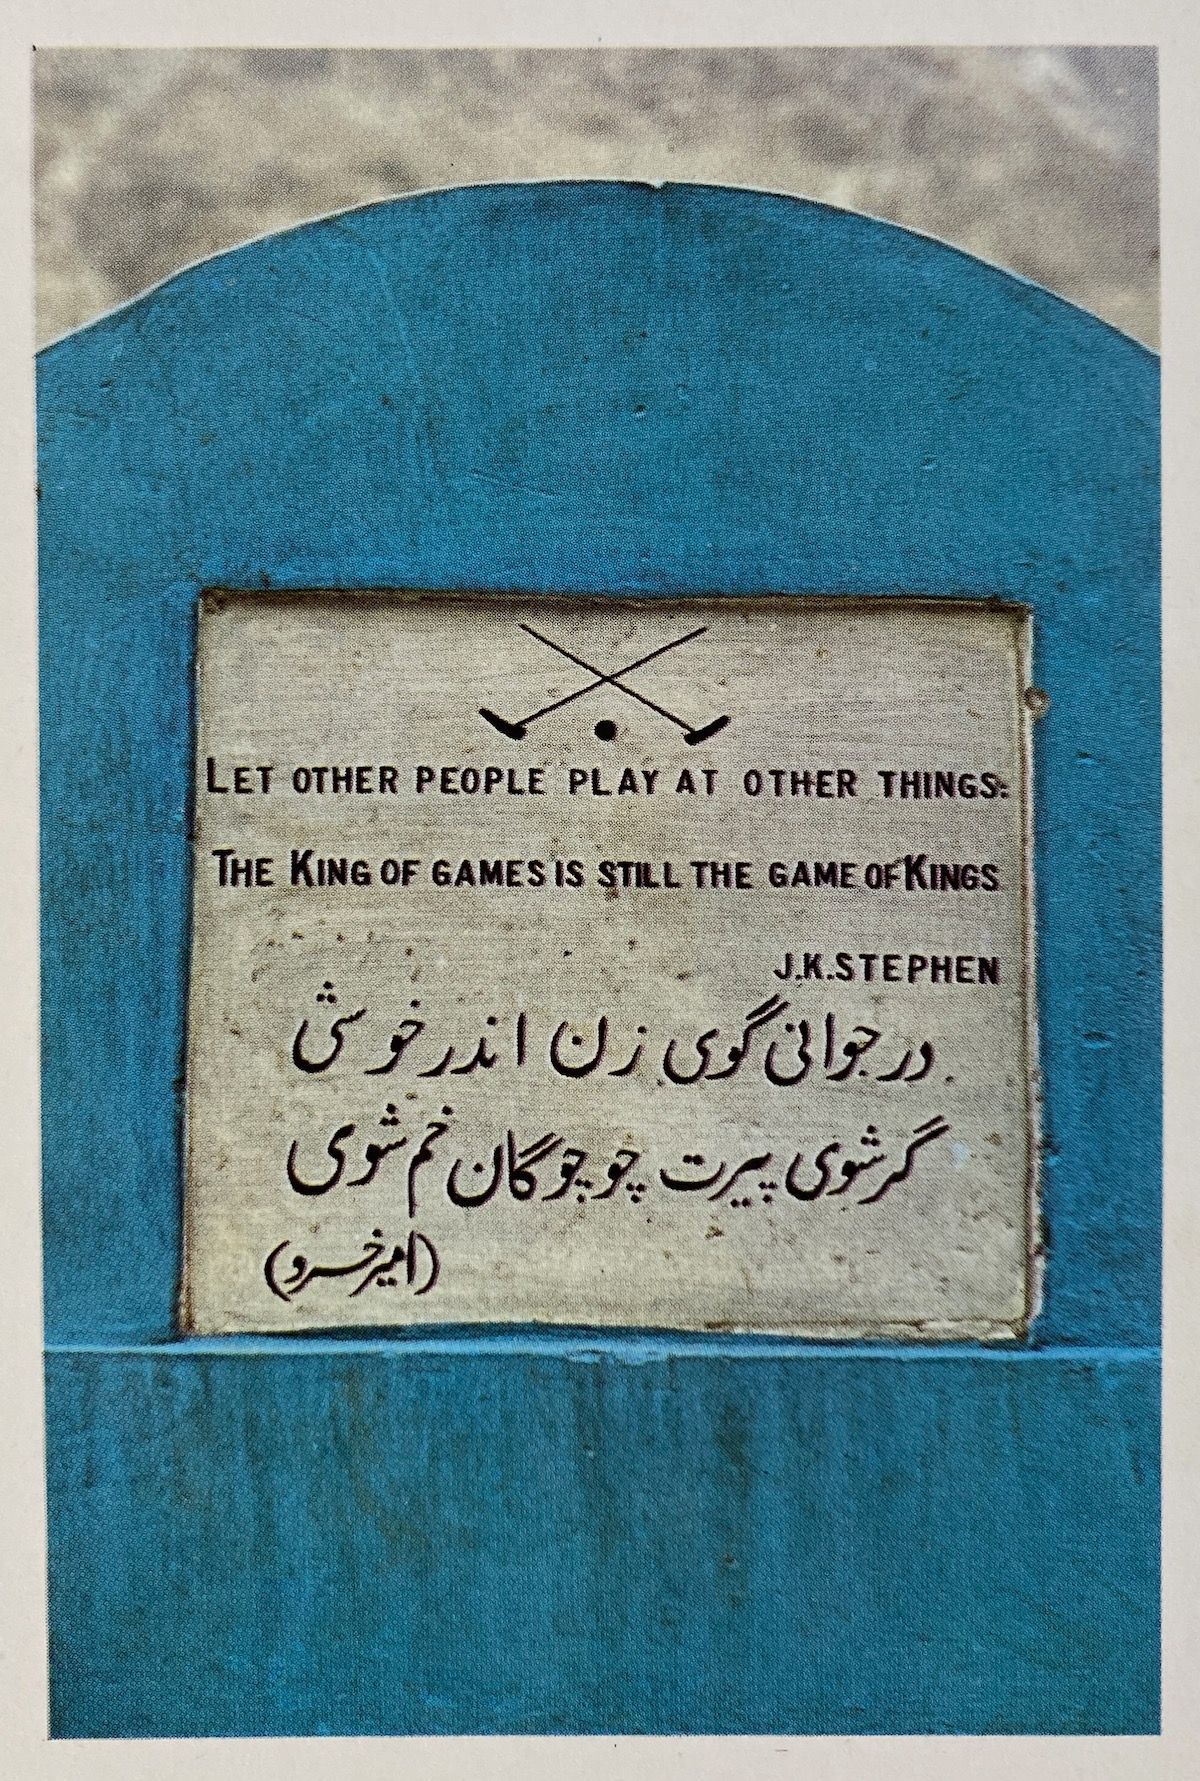 LET OTHER PEOPLE PLAY AT OTHER THINGS:
THE KING OF GAMES IS STILL THE GAME OF KINGS
J.K.STEPHEN
در جوانی گوی زن اندر خوشی
گر شوی پیرت چو چوگان خم شوی
(امیر خسرو)